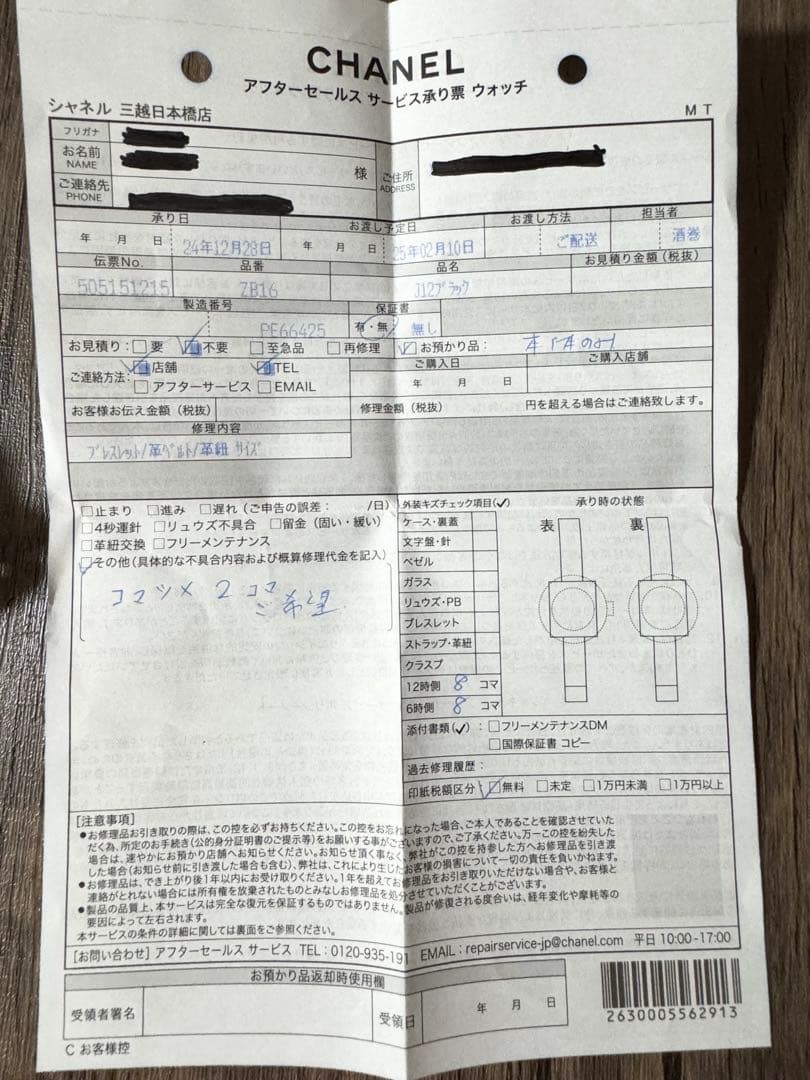 CHANEL
アフターセールス サービス承り票 ウォッチ
シャネル 三越日本橋店
M T
フリガナ
お名前
NAME
様
ご住所
ADDRESS
ご連絡先
PHONE
承り日
お渡し予定日
お渡し方法
担当者
年 月 日 24年12月28日
年 月 日 25年02月10日
ご配送
酒巻
伝票No.
品番
品名
お見積り金額(税抜)
505151215
ZB16
J12ブラック
製造番号
保証書
PE66425
有・無 無し
お見積り: □要 □不要 □至急品 □再修理 □お預かり品: 本体のみ
ご連絡方法: □店舗 □TEL
□アフターサービス □EMAIL
ご購入日
ご購入店舗
年 月 日
お客様お伝え金額(税抜)
修理金額(税抜) 円を超える場合はご連絡致します。
修理内容
ブレスレット/革ベルト/革紐 サイズ
□止まり □進み □遅れ(ご申告の誤差: /日)
□4秒運針 □リュウズ不具合 □留金(固い・緩い)
□革紐交換 □フリーメンテナンス
□その他(具体的な不具合内容および概算修理代金を記入)
コマツメ 2コマ
ご希望
外装キズチェック項目(✓)
承り時の状態
ケース・裏蓋
文字盤・針
ベゼル
ガラス
リュウズ・PB
ブレスレット
ストラップ・革紐
クラスプ
12時側 8 コマ
6時側 8 コマ
表 裏
添付書類(✓): □フリーメンテナンスDM
□国際保証書 コピー
過去修理履歴:
印紙税額区分 □無料 □未定 □1万円未満 □1万円以上
[注意事項]
●お修理品お引き取りの際は、この控を必ずお持ちください。この控をお忘れになった場合、ご本人であることを確認させていた
だく為、所定のお手続き(公的身分証明書のご提示等)をお願いする事がございますので、ご了承ください。万一この控を紛失した
場合は、速やかにお預かり店舗へお知らせください。お知らせ頂く事なく、弊社がこの控を持参した方へお修理品を引き渡
した場合(お知らせ前に引き渡した場合も含む)、弊社は、これにより生じたお客様の損害について一切の責任を負いかねます。
●お修理品は、でき上がり後1年以内にお受け取りください。1年を超えてお修理品をお引き取りいただけない場合や、お客様と
連絡がとれない場合には所有権を放棄されたものとみなしお修理品を処分させていただくことがございます。
●製品の品質上、本サービスは完全な復元を保証するものではありません。製品が修復される度合いは、経年変化や摩耗等の
要因によって左右されます。
本サービスの条件の詳細に関しては裏面をご参照ください。
[お問い合わせ] アフターセールス サービス TEL:0120-935-191 EMAIL:repairservice-jp@chanel.com 平日 10:00-17:00
お預かり品返却時使用欄
受領者署名
受領日 年 月 日
2630005562913
C お客様控